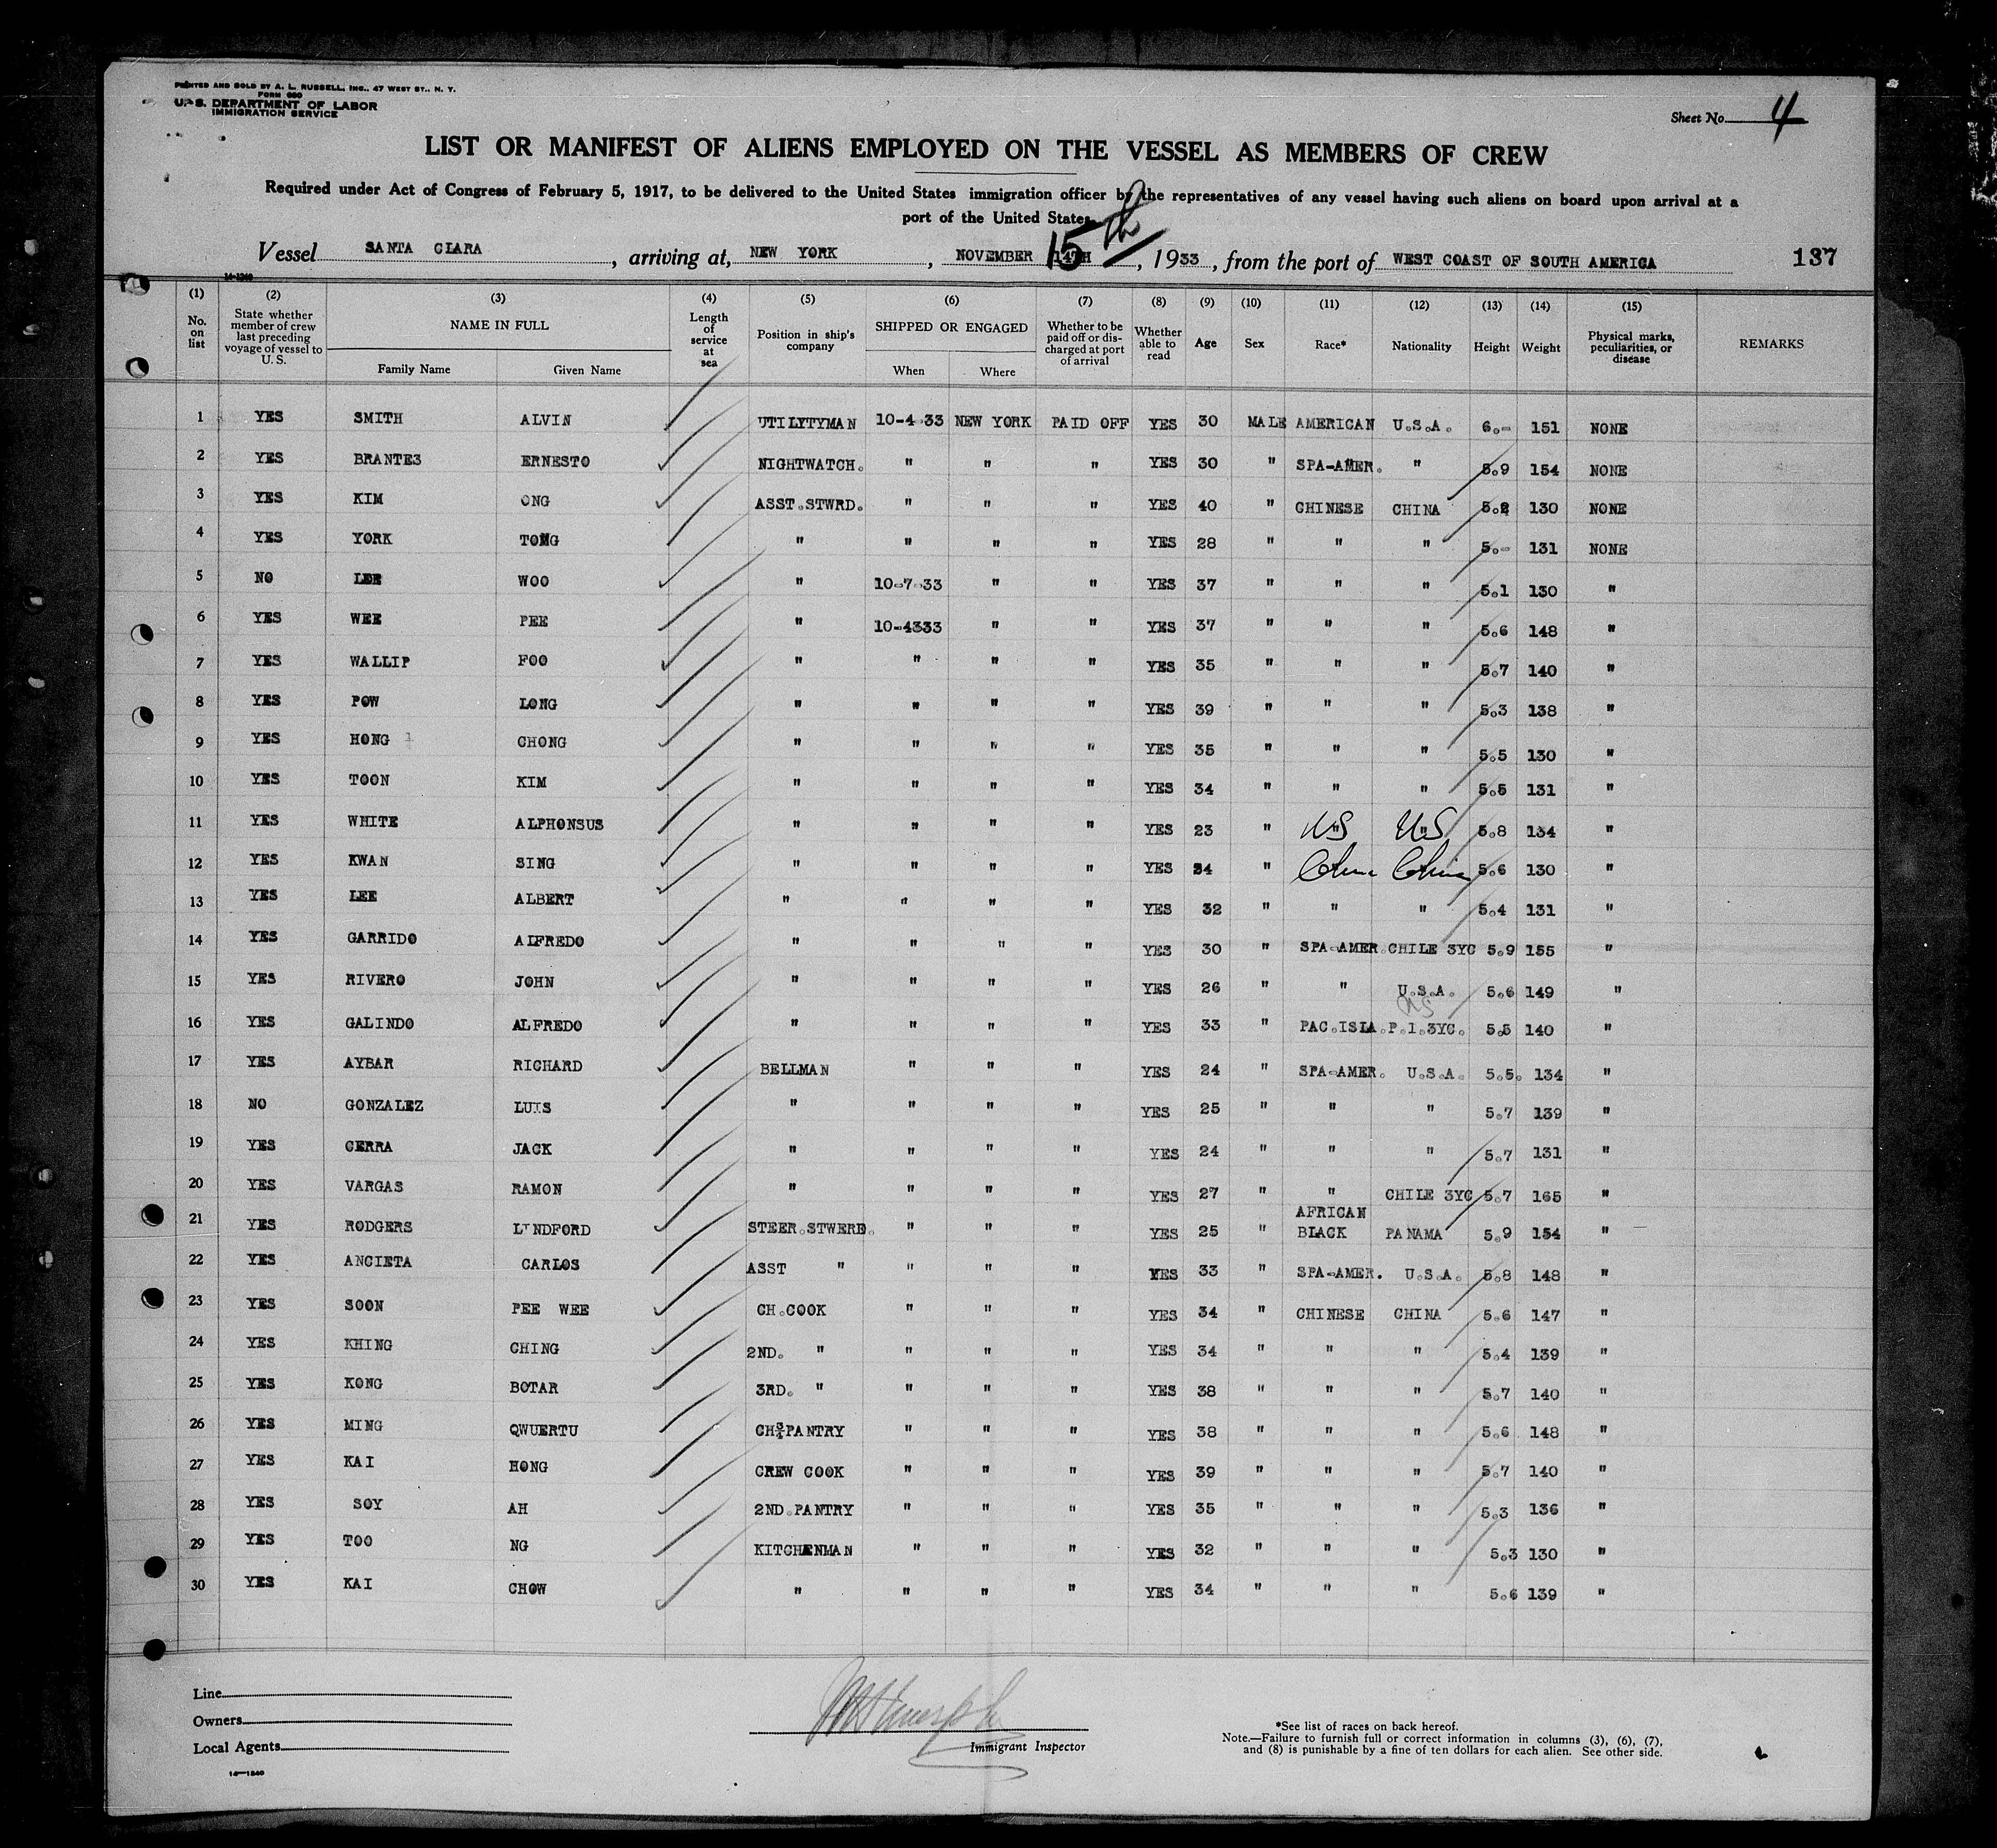 PRINTED AND SOLD BY A. L. RUSSELL, INC., 47 WEST ST., N. Y.
FORM 680
U. S. DEPARTMENT OF LABOR
IMMIGRATION SERVICE
Sheet No. 4
LIST OR MANIFEST OF ALIENS EMPLOYED ON THE VESSEL AS MEMBERS OF CREW
Required under Act of Congress of February 5, 1917, to be delivered to the United States immigration officer by the representatives of any vessel having such aliens on board upon arrival at a
port of the United States
Vessel SANTA CLARA, arriving at, NEW YORK, NOVEMBER 15th 14TH, 1933, from the port of WEST COAST OF SOUTH AMERICA 137
14-1240
(1) (2) (3) (4) (5) (6) (7) (8) (9) (10) (11) (12) (13) (14) (15)
No. on list | State whether member of crew last preceding voyage of vessel to U. S. | NAME IN FULL Family Name Given Name | Length of service at sea | Position in ship's company | SHIPPED OR ENGAGED When Where | Whether to be paid off or discharged at port of arrival | Whether able to read | Age | Sex | Race* | Nationality | Height | Weight | Physical marks, peculiarities, or disease | REMARKS
1 YES SMITH ALVIN UTILYTYMAN 10-4-33 NEW YORK PAID OFF YES 30 MALE AMERICAN U.S.A. 6.- 151 NONE
2 YES BRANTES ERNESTO NIGHTWATCH. " " " YES 30 " SPA-AMER. " 5.9 154 NONE
3 YES KIM ONG ASST.STWRD. " " " YES 40 " CHINESE CHINA 5.2 130 NONE
4 YES YORK TONG " " " " YES 28 " " " 5.- 131 NONE
5 NO LEE WOO " 10-7-33 " " YES 37 " " " 5.1 130 "
6 YES WEE PEE " 10-4333 " " YES 37 " " " 5.6 148 "
7 YES WALLIP FOO " " " " YES 35 " " " 5.7 140 "
8 YES POW LONG " " " " YES 39 " " " 5.3 138 "
9 YES HONG CHONG " " " " YES 35 " " " 5.5 130 "
10 YES TOON KIM " " " " YES 34 " " " 5.5 131 "
11 YES WHITE ALPHONSUS " " " " YES 23 " US US 5.8 134 "
12 YES KWAN SING " " " " YES 34 " China China 5.6 130 "
13 YES LEE ALBERT " " " " YES 32 " " " 5.4 131 "
14 YES GARRIDO ALFREDO " " " " YES 30 " SPA-AMER. CHILE 3YC 5.9 155 "
15 YES RIVERO JOHN " " " " YES 26 " " U.S.A. 5.6 149 "
16 YES GALINDO ALFREDO " " " " YES 33 " PAC.ISLA. US P.I.3YC. 5.5 140 "
17 YES AYBAR RICHARD BELLMAN " " " YES 24 " SPA-AMER. U.S.A. 5.5. 134 "
18 NO GONZALEZ LUIS " " " " YES 25 " " " 5.7 139 "
19 YES CERRA JACK " " " " YES 24 " " " 5.7 131 "
20 YES VARGAS RAMON " " " " YES 27 " " CHILE 3YC 5.7 165 "
21 YES RODGERS LYNDFORD STEER.STWERD. " " " YES 25 " AFRICAN BLACK PANAMA 5.9 154 "
22 YES ANCIETA CARLOS ASST " " " " YES 33 " SPA-AMER. U.S.A. 5.8 148 "
23 YES SOON PEE WEE CH.COOK " " " YES 34 " CHINESE CHINA 5.6 147 "
24 YES KHING CHING 2ND. " " " " YES 34 " " " 5.4 139 "
25 YES KONG BOTAR 3RD. " " " " YES 38 " " " 5.7 140 "
26 YES MING QWUERTU CH PANTRY " " " YES 38 " " " 5.6 148 "
27 YES KAI HONG CREW COOK " " " YES 39 " " " 5.7 140 "
28 YES SOY AH 2ND.PANTRY " " " YES 35 " " " 5.3 136 "
29 YES TOO NG KITCHENMAN " " " YES 32 " " " 5.3 130 "
30 YES KAI CHOW " " " " YES 34 " " " 5.6 139 "
Line
Owners
Local Agents
14—1240
Immigrant Inspector
*See list of races on back hereof.
Note.—Failure to furnish full or correct information in columns (3), (6), (7),
and (8) is punishable by a fine of ten dollars for each alien. See other side.